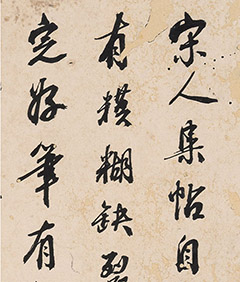 宋人集帖自
有模糊缺裂
完好筆有